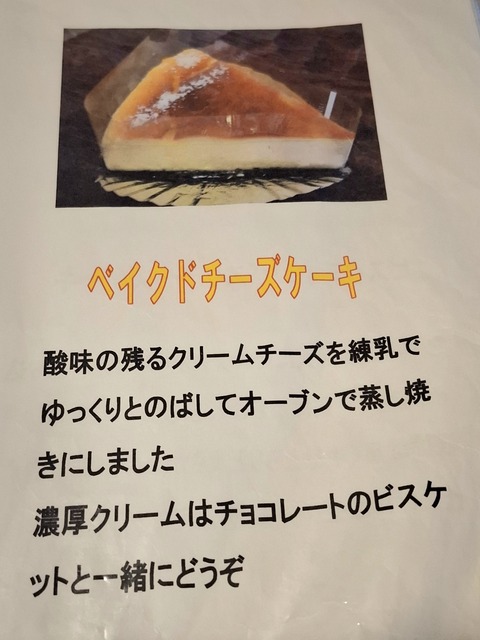 ベイクドチーズケーキ
酸味の残るクリームチーズを練乳で
ゆっくりとのばしてオーブンで蒸し焼
きにしました
濃厚クリームはチョコレートのビスケ
ットと一緒にどうぞ